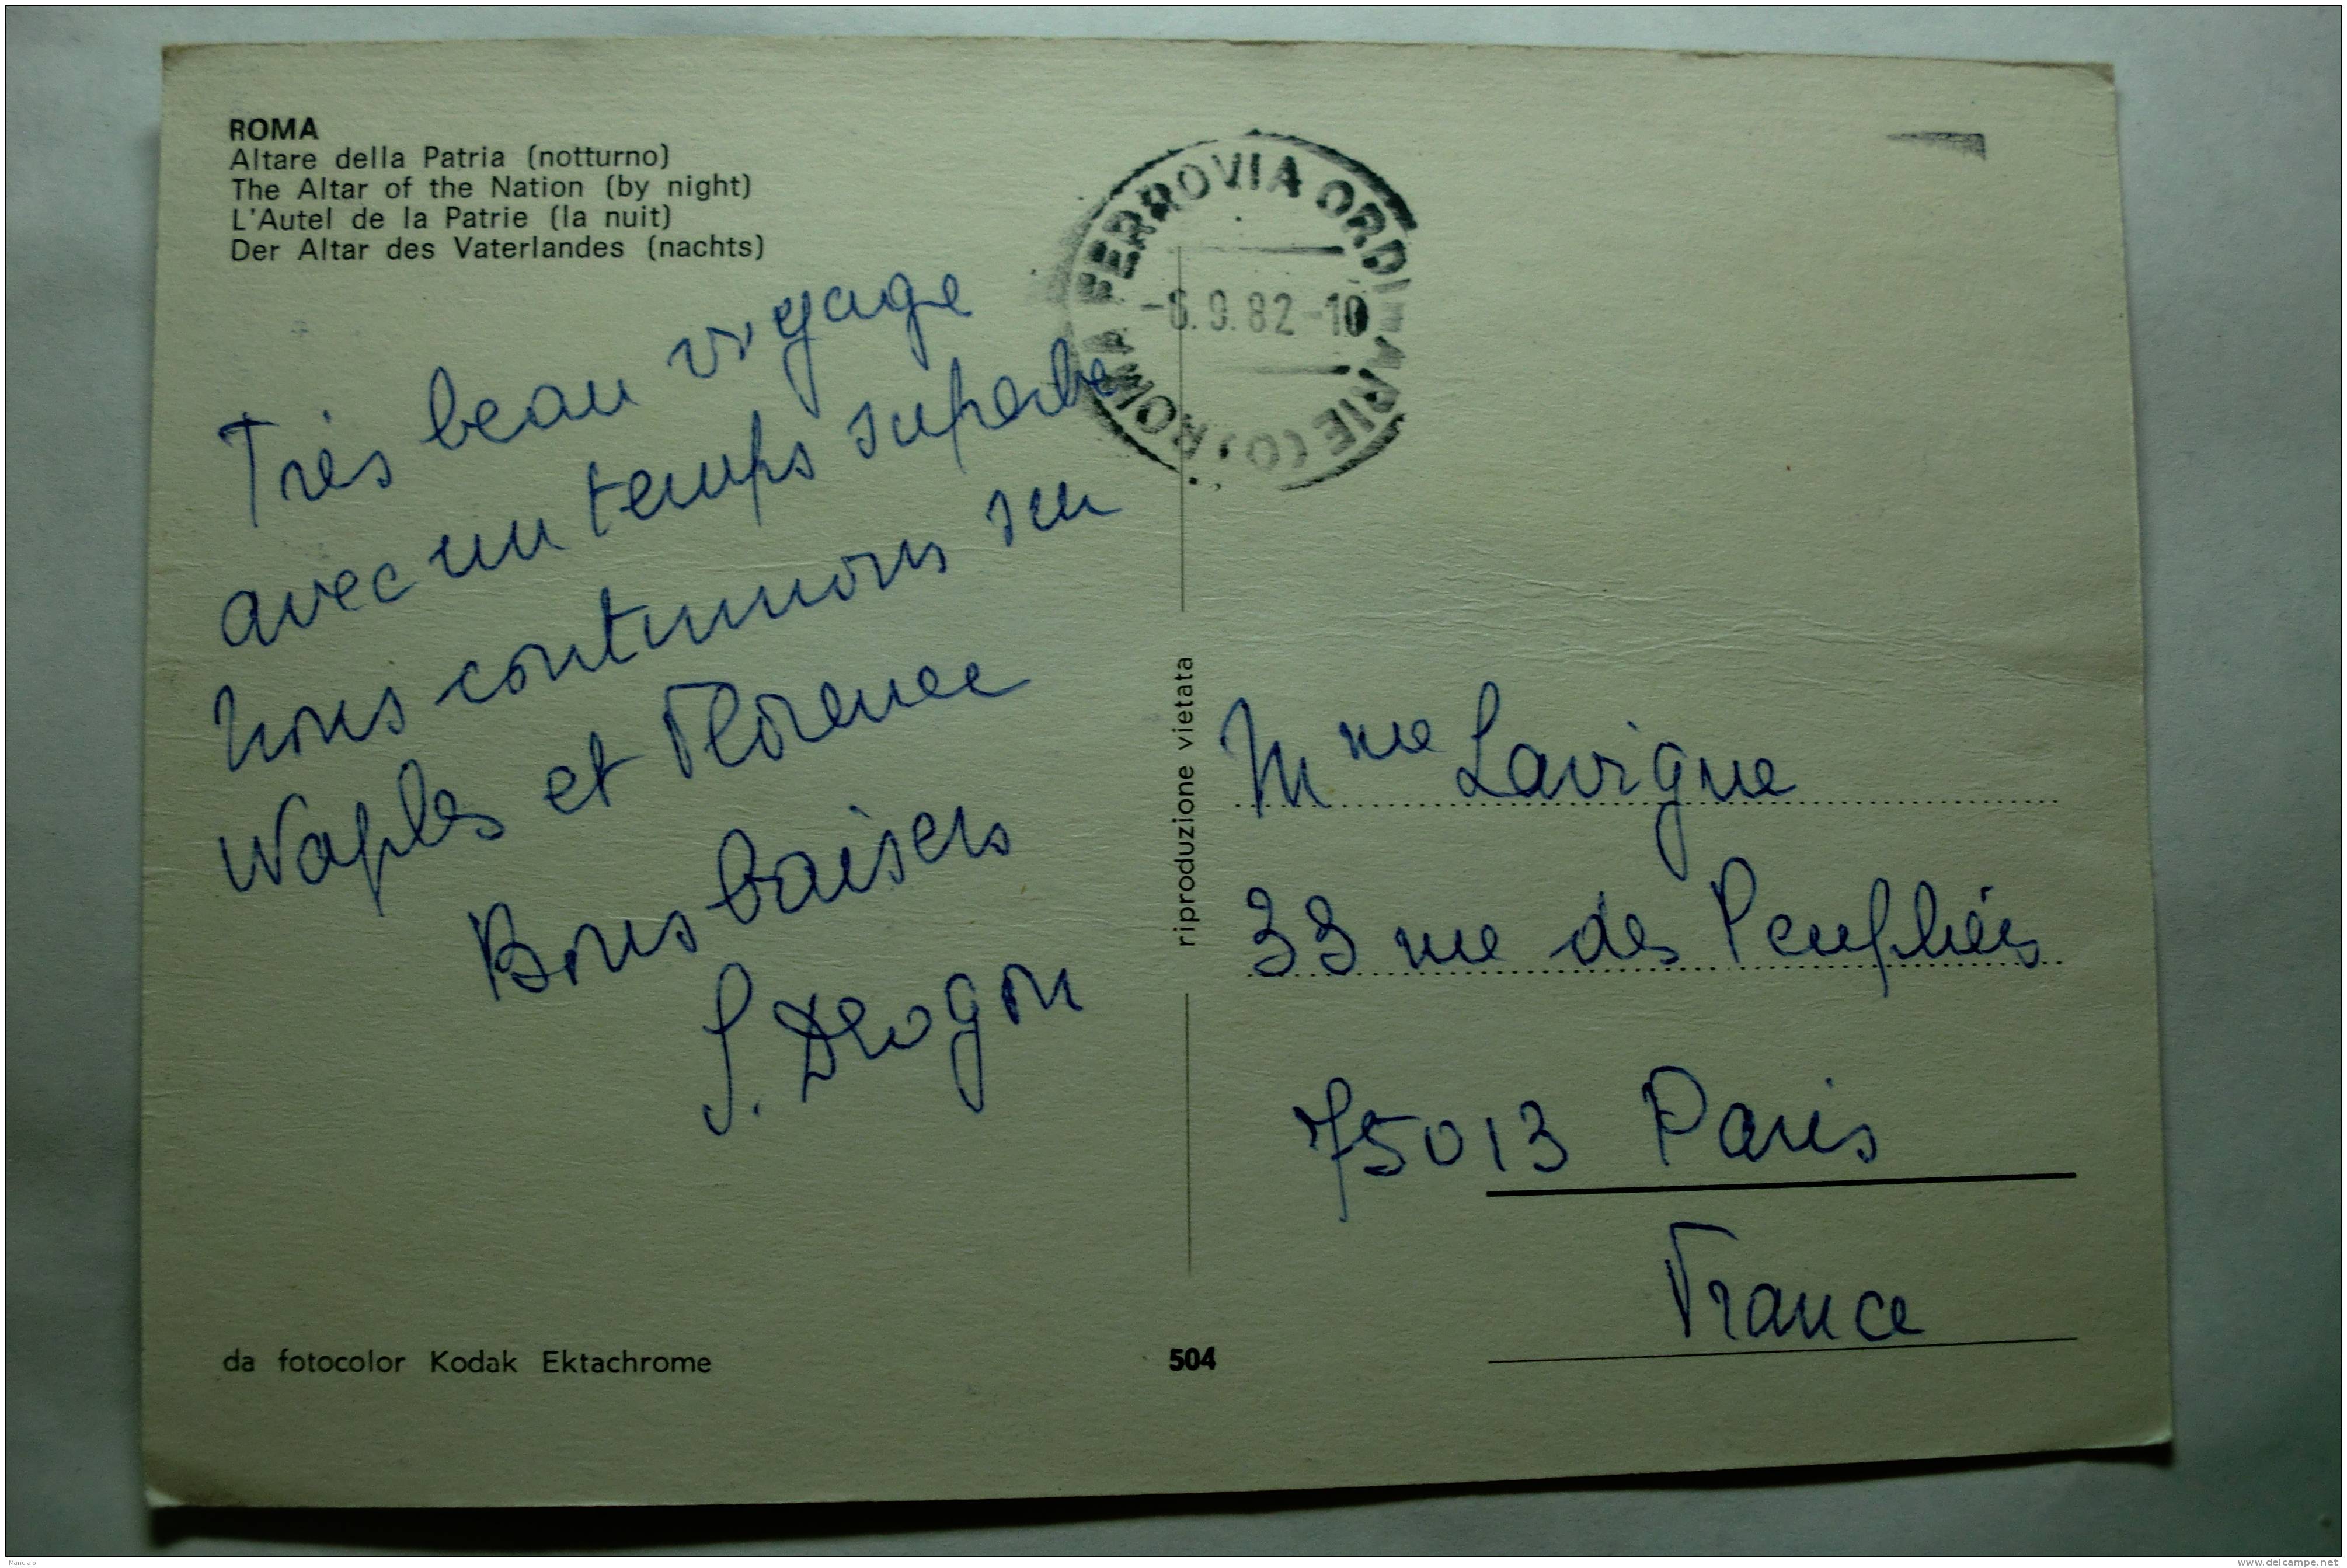 ROMA
Altare della Patria (notturno)
The Altar of the Nation (by night)
L'Autel de la Patrie (la nuit)
Der Altar des Vaterlandes (nachts)
Très beau voyage
avec un temps superbe
nous continuons sur
Naples et Florence
Bons baisers
S. Drogon
da fotocolor Kodak Ektachrome
riproduzione vietata
504
ROMA FERROVIA ORDINARIE (O)
-6.9.82-10
Mme Lavigne
33 rue des Peupliers
75013 Paris
France
Manulalo
www.delcampe.net